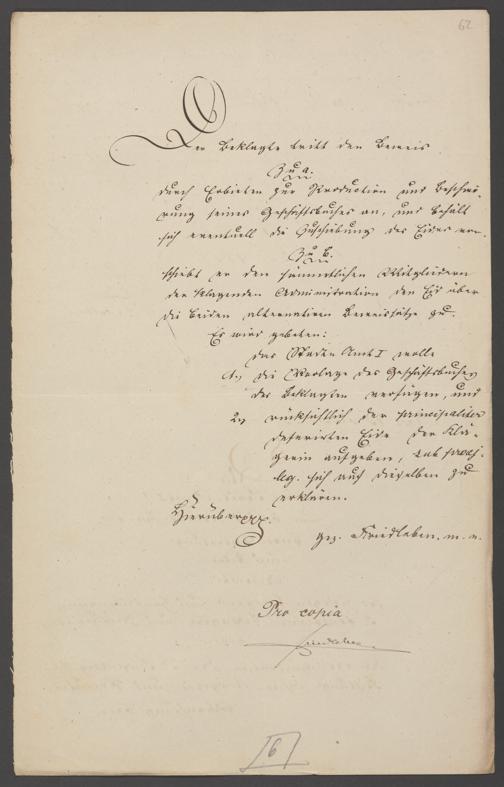 62
Der Beklagte tritt den Beweis
Zu a.
durch Erbieten zur Production und Beschwö-
rung seines Geschäftsbuches an, und behält
sich eventuell die Zuschiebung des Eides vor.
Zu b.
schiebt er den sämmtlichen Mitgliedern
der klagenden Administration den Eid über
die beiden alternativen Beweissätze zu.
Es wird gebeten:
das Stadt Amt I wolle
1., die Vorlage des Geschäftsbuches
des Beklagten verfügen, und
2., rücksichtlich der principaliter
deferirten Eide der Klä-
gerin aufgeben, sub praej.
leg. sich auf dieselben zu
erklären.
Hierüber
gez. Friedleben. m. n.
Pro copia
Friedleben
6